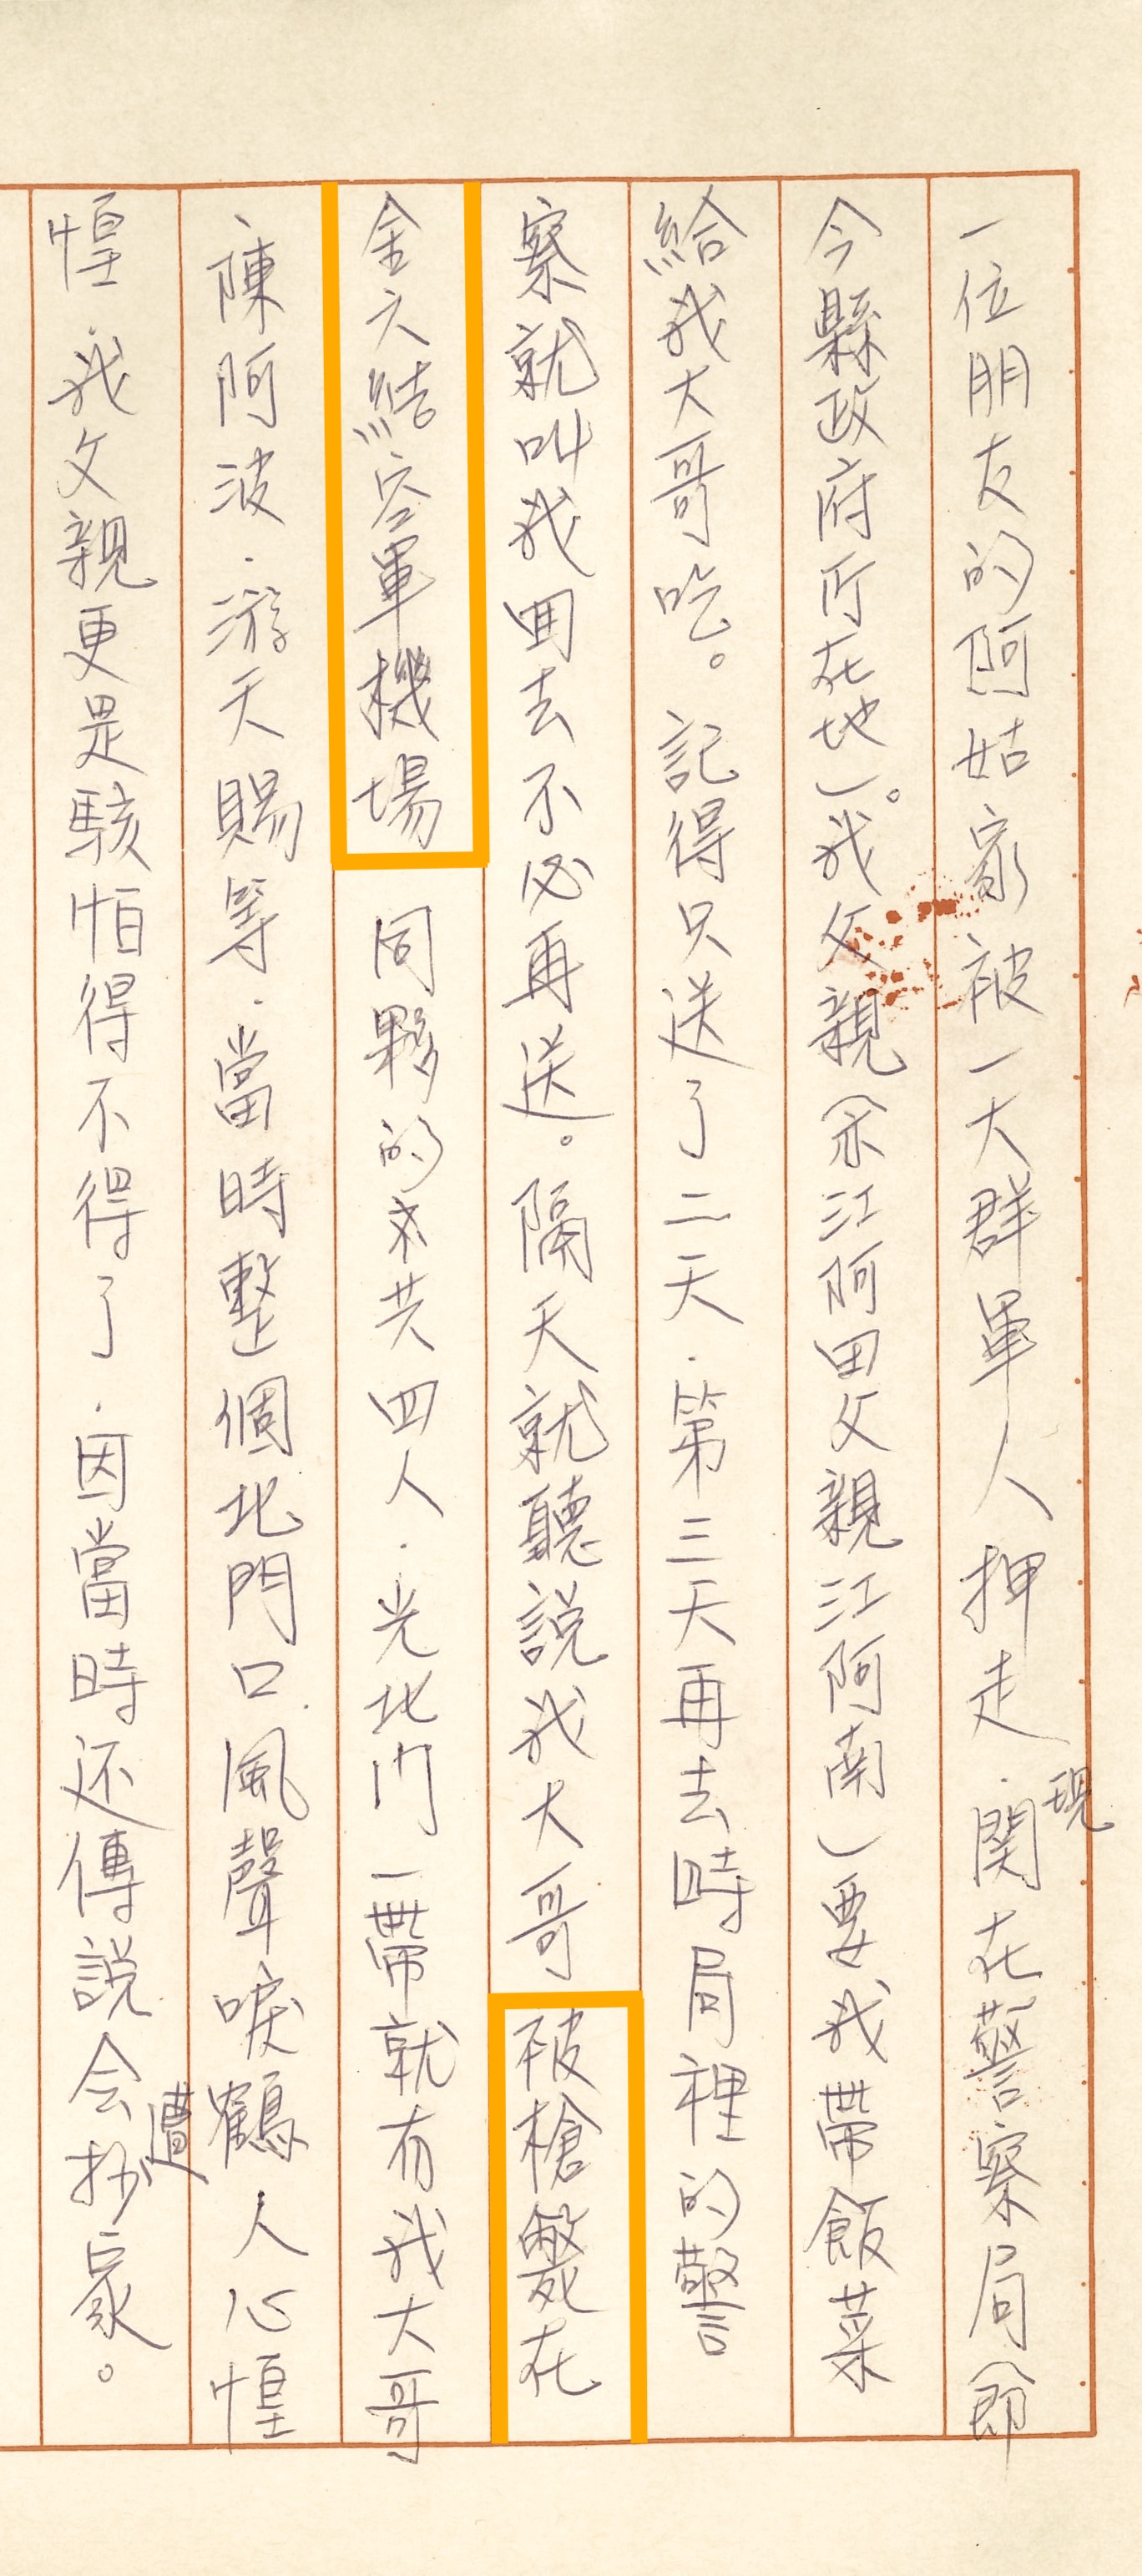 一位朋友的阿姑家被一大群軍人押走．現関在警察局（即
今縣政府所在地）。我父親（余江阿田父親江阿南）要我帶飯菜
給我大哥吃。記得只送了二天．第三天再去時局裡的警
察就叫我回去不必再送。隔天就聽說我大哥被槍斃在
金六結空軍機場 同夥的共四人．光北門一帶就有我大哥
、陳阿波．游天賜等．當時整個北門口風聲唳鶴人心惶
惶．我父親更是駭怕得不得了．因當時还傳說会遭抄家。